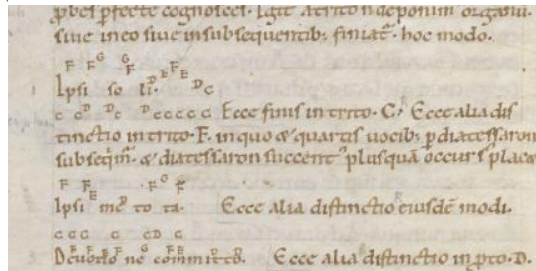 pbes pfecte cognoscet. Igit a trito n deponim organu.
siue in eo siue in subsequentib; finiat. hoc modo.
F F G G F D E F E D C
Ipsi so li
c c D D c D c c c c c Ecce finis in trito. C. Ecce alia dis
tinctio in trito. F. in quo & quartis uocib; p diatessaron
subseqm. & diatessaron succent plusquā occurs placæ
F F E F G F
Ipsi me to ta. Ecce alia distinctio eiusdē modi.
c c c c c D c
F F F F G F E E D
Deuotio ne committo. Ecce alia distinctio in pto. D.